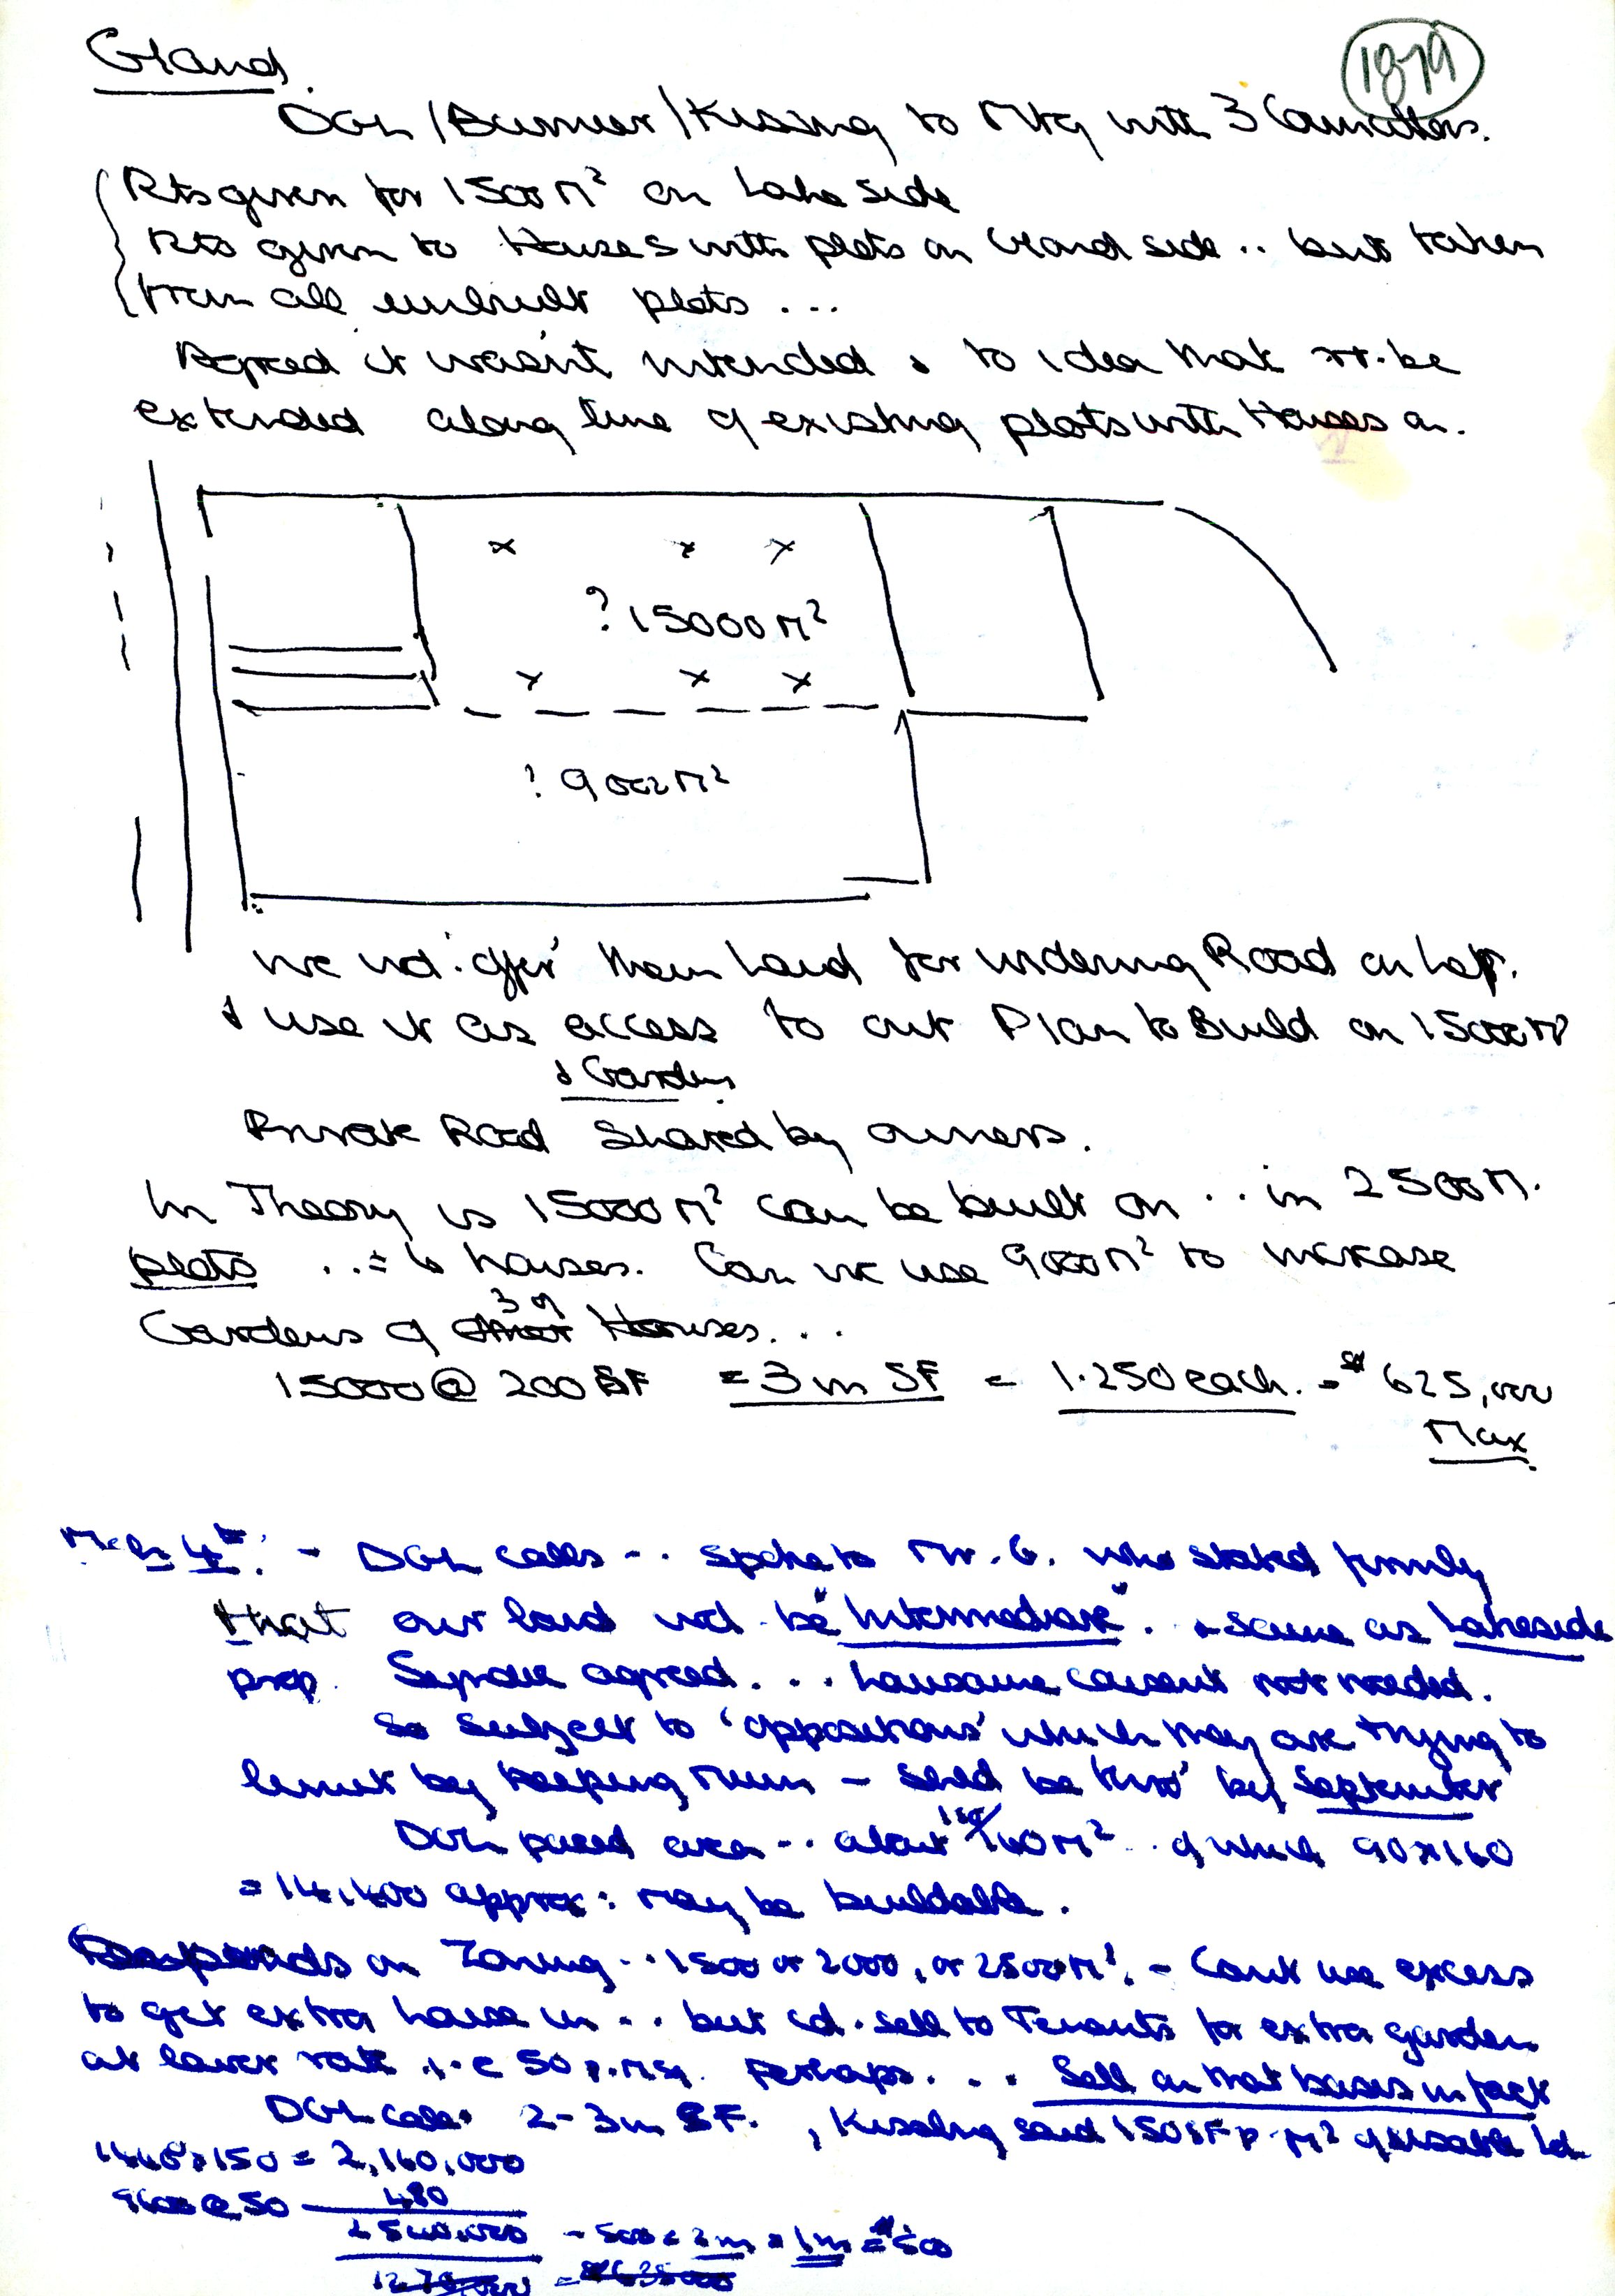 Gland.
1879
DGL / Burnier / Kissling to Mtg with 3 Councillors.
Rts given for 1500 M² on Lake side
Rts given to Houses with plots on Gland side .. but taken
from all unbuilt plots ...
Agreed it wasn't intended & to idea that be
extended along line of existing plots with Houses on.
? 15000 M²
? 9000 M²
We wd. 'offer' them Land for widening Road on left.
& use it as access to our Plan to Build on 15000 M²
& Gardens
Private Road Shared by owners.
In Theory is 15000 M² can be built on .. in 2500 M.
plots ..= 6 houses. Can we use 9000 M² to increase
Gardens of 3 of Houses...
15000 @ 200 SF = 3 m SF = 1.250 each. = 625,000
Max.
Mch 4th: - DGL calls .. spoke to Mr. G. who stated firmly
that our land wd. be "Intermediate". & same as Lakeside
prop. agreed ... Lausanne consent not needed.
So subject to 'oppositions' which they are trying to
limit by keeping Mum - shld be thro' by September
DGL paced area .. about 160 M² .. of which 90 x 160
= 14,400 approx: may be buildable.
Depends on Zoning .. 1500 or 2000, or 2500 M². - Can't use excess
to get extra house in ... but cd. sell to Tenants for extra garden
at lower rate i.e 50 p. Msq. perhaps. .. Sell on that basis in fact
DGL calc. 2-3 m SF. , Kissling said 150 SF p. M² of usable ld.
x 150 = 2,160,000
9600 @ 50 480
- 500 = 2m = 1m = 500